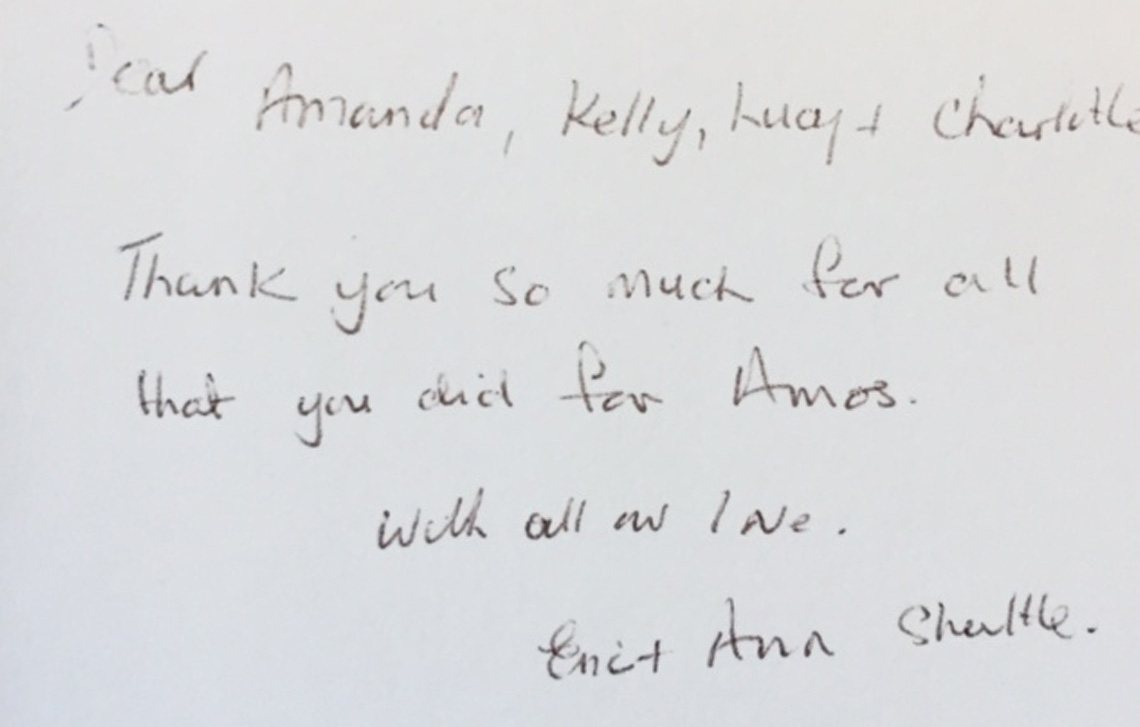 Dear Amanda, Kelly, Lucy + Charlotte
Thank you so much for all
that you did for Amos.
with all our love.
Eric + Ann Shuttle.